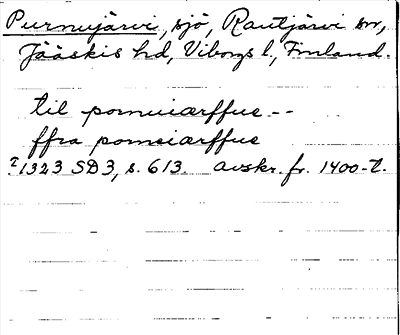 Purnujärvi, sjö, Rautjärvi sn,
Jääskis hd, Viborgs l, Finland.
til pornuiærffue --
ffra porneiærffue
? 1323 SD3, s. 613. avskr. fr. 1400-t.